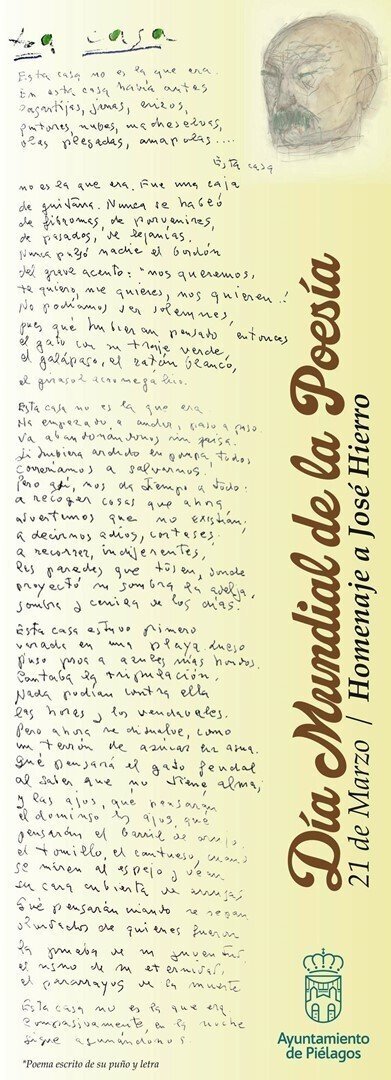 La casa
Esta casa no es la que era.
En esta casa había antes
lagartijas, jarras, erizos,
pintores, nubes, madreselvas,
olas plegadas, amapolas....
Esta casa
no es la que era. Fue una caja
de guitarra. Nunca se habló
de fibromas, de porvenires,
de pasados, de lejanías.
Nunca pulsó nadie el bordón
del grave acento: "nos queremos,
te quiero, me quieres, nos quieren..."
No podíamos ser solemnes,
pues qué hubieran pensado entonces
el gato con su traje verde,
el galápago, el ratón blanco,
el girasol acromegálico.
Esta casa no es la que era.
Ha empezado a andar, paso a paso.
Va abandonándonos sin prisa.
Si hubiera ardido en pompa, todos
correríamos a salvarnos.
Pero así, nos da tiempo a todo:
a recoger cosas que ahora
advertimos que no existían;
a decirnos adiós, corteses;
a recorrer, indiferentes,
las paredes que tosen, donde
proyectó su sombra la adelfa,
sombra y ceniza de los días.
Esta casa estuvo primero
varada en una playa. Luego
puso proa a azules más hondos.
Cantaba la tripulación.
Nada podían contra ella
las horas y los vendavales.
Pero ahora se disuelve, como
un terrón de azúcar en agua.
Qué pensará el gato feudal
al saber que no tiene alma;
y los ajos, qué pensarán
el domingo los ajos, qué
pensarán el barril de orujo,
el tomillo, el cantueso, cuando
se miren al espejo y vean
su cara cubierta de arrugas.
Qué pensarán cuando se sepan
olvidados de quienes fueron
la prueba de su juventud,
el signo de su eternidad,
el pararrayos de la muerte
Esta casa no es la que era
Compasivamente, en la noche
sigue acunándonos.
*Poema escrito de su puño y letra
Día Mundial de la Poesía
21 de Marzo / Homenaje a José Hierro
Ayuntamiento
de Piélagos